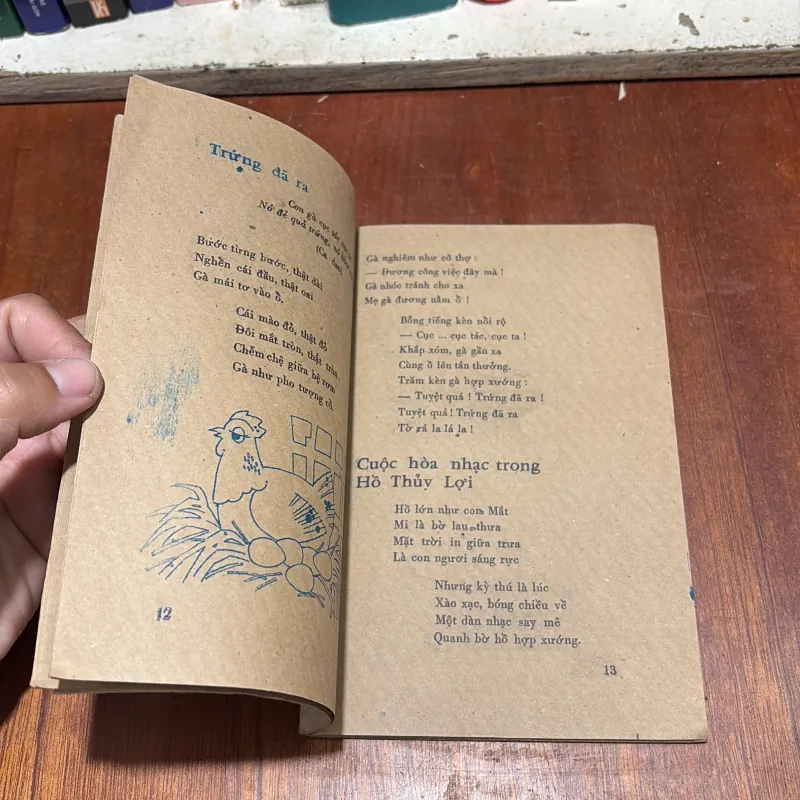 Trứng đã ra
Con gà cục tác
Nó đẻ quả trứng, nó
(Ca dao)
Bước từng bước, thật dài
Nghển cái đầu, thật oai
Gà mái tơ vào ổ.
Cái mào đỏ, thật đỏ
Đôi mắt tròn, thật tròn
Chễm chệ giữa bệ rơm
Gà như pho tượng cổ.
12
Gà nghiêm như cô thợ :
— Đương công việc đây mà !
Gà nhóc tránh cho xa
Mẹ gà đương nằm ổ !
Bỗng tiếng kèn nổi rộ
— Cục ... cục tác, cục ta !
Khắp xóm, gà gần xa
Cùng ồ lên tán thưởng.
Trăm kèn gà hợp xướng :
— Tuyệt quá ! Trứng đã ra !
Tuyệt quá ! Trứng đã ra
Tờ rá la lá la !
Cuộc hòa nhạc trong
Hồ Thủy Lợi
Hồ lớn như con Mắt
Mi là bờ lau thưa
Mặt trời in giữa trưa
Là con ngươi sáng rực
Nhưng kỳ thú là lúc
Xào xạc, bóng chiều về
Một dàn nhạc say mê
Quanh bờ hồ hợp xướng.
13